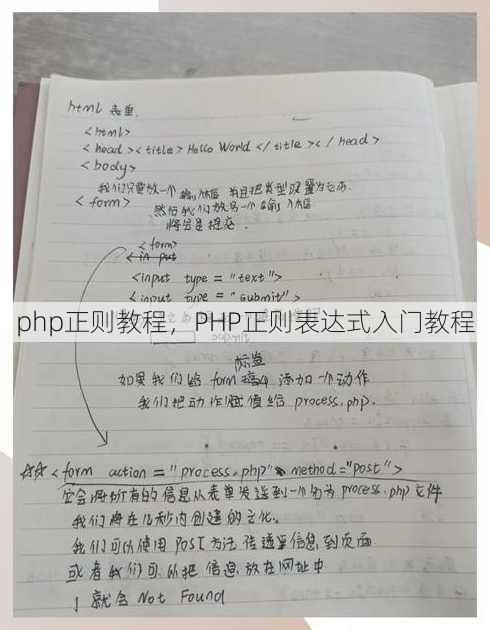 html 表单.
<html>
<head><title>Hello World</title></head>
<body>
我们只需放一个输入标签 并且把类型设置为它.
<form> 然后我们放另一个输入标签
将会是提交.
<form>
<input
<input type="text">
<input type="submit">
php正则教程，PHP正则表达式入门教程
标签
如果我们给 form 添加一个动作
我们把动作赋值给 process.php.
<form action="process.php" method="post">
它会将所有的信息从表单发送到一个名为 process.php 文件
我们将在几秒内创建的文化.
我们可以使用 POST 方法 传递信息到页面
或者我们可以把信息放在网址中
就会 Not Found